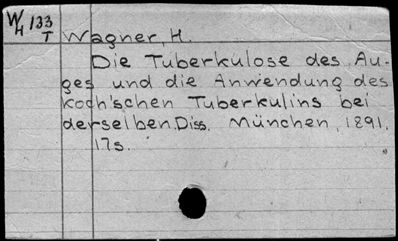 W/H 133
T
Wagner, H.
Die Tuberkulose des Au-
ges und die Anwendung des
Koch'schen Tuberkulins bei
derselben. Diss. München, 1891.
17s.